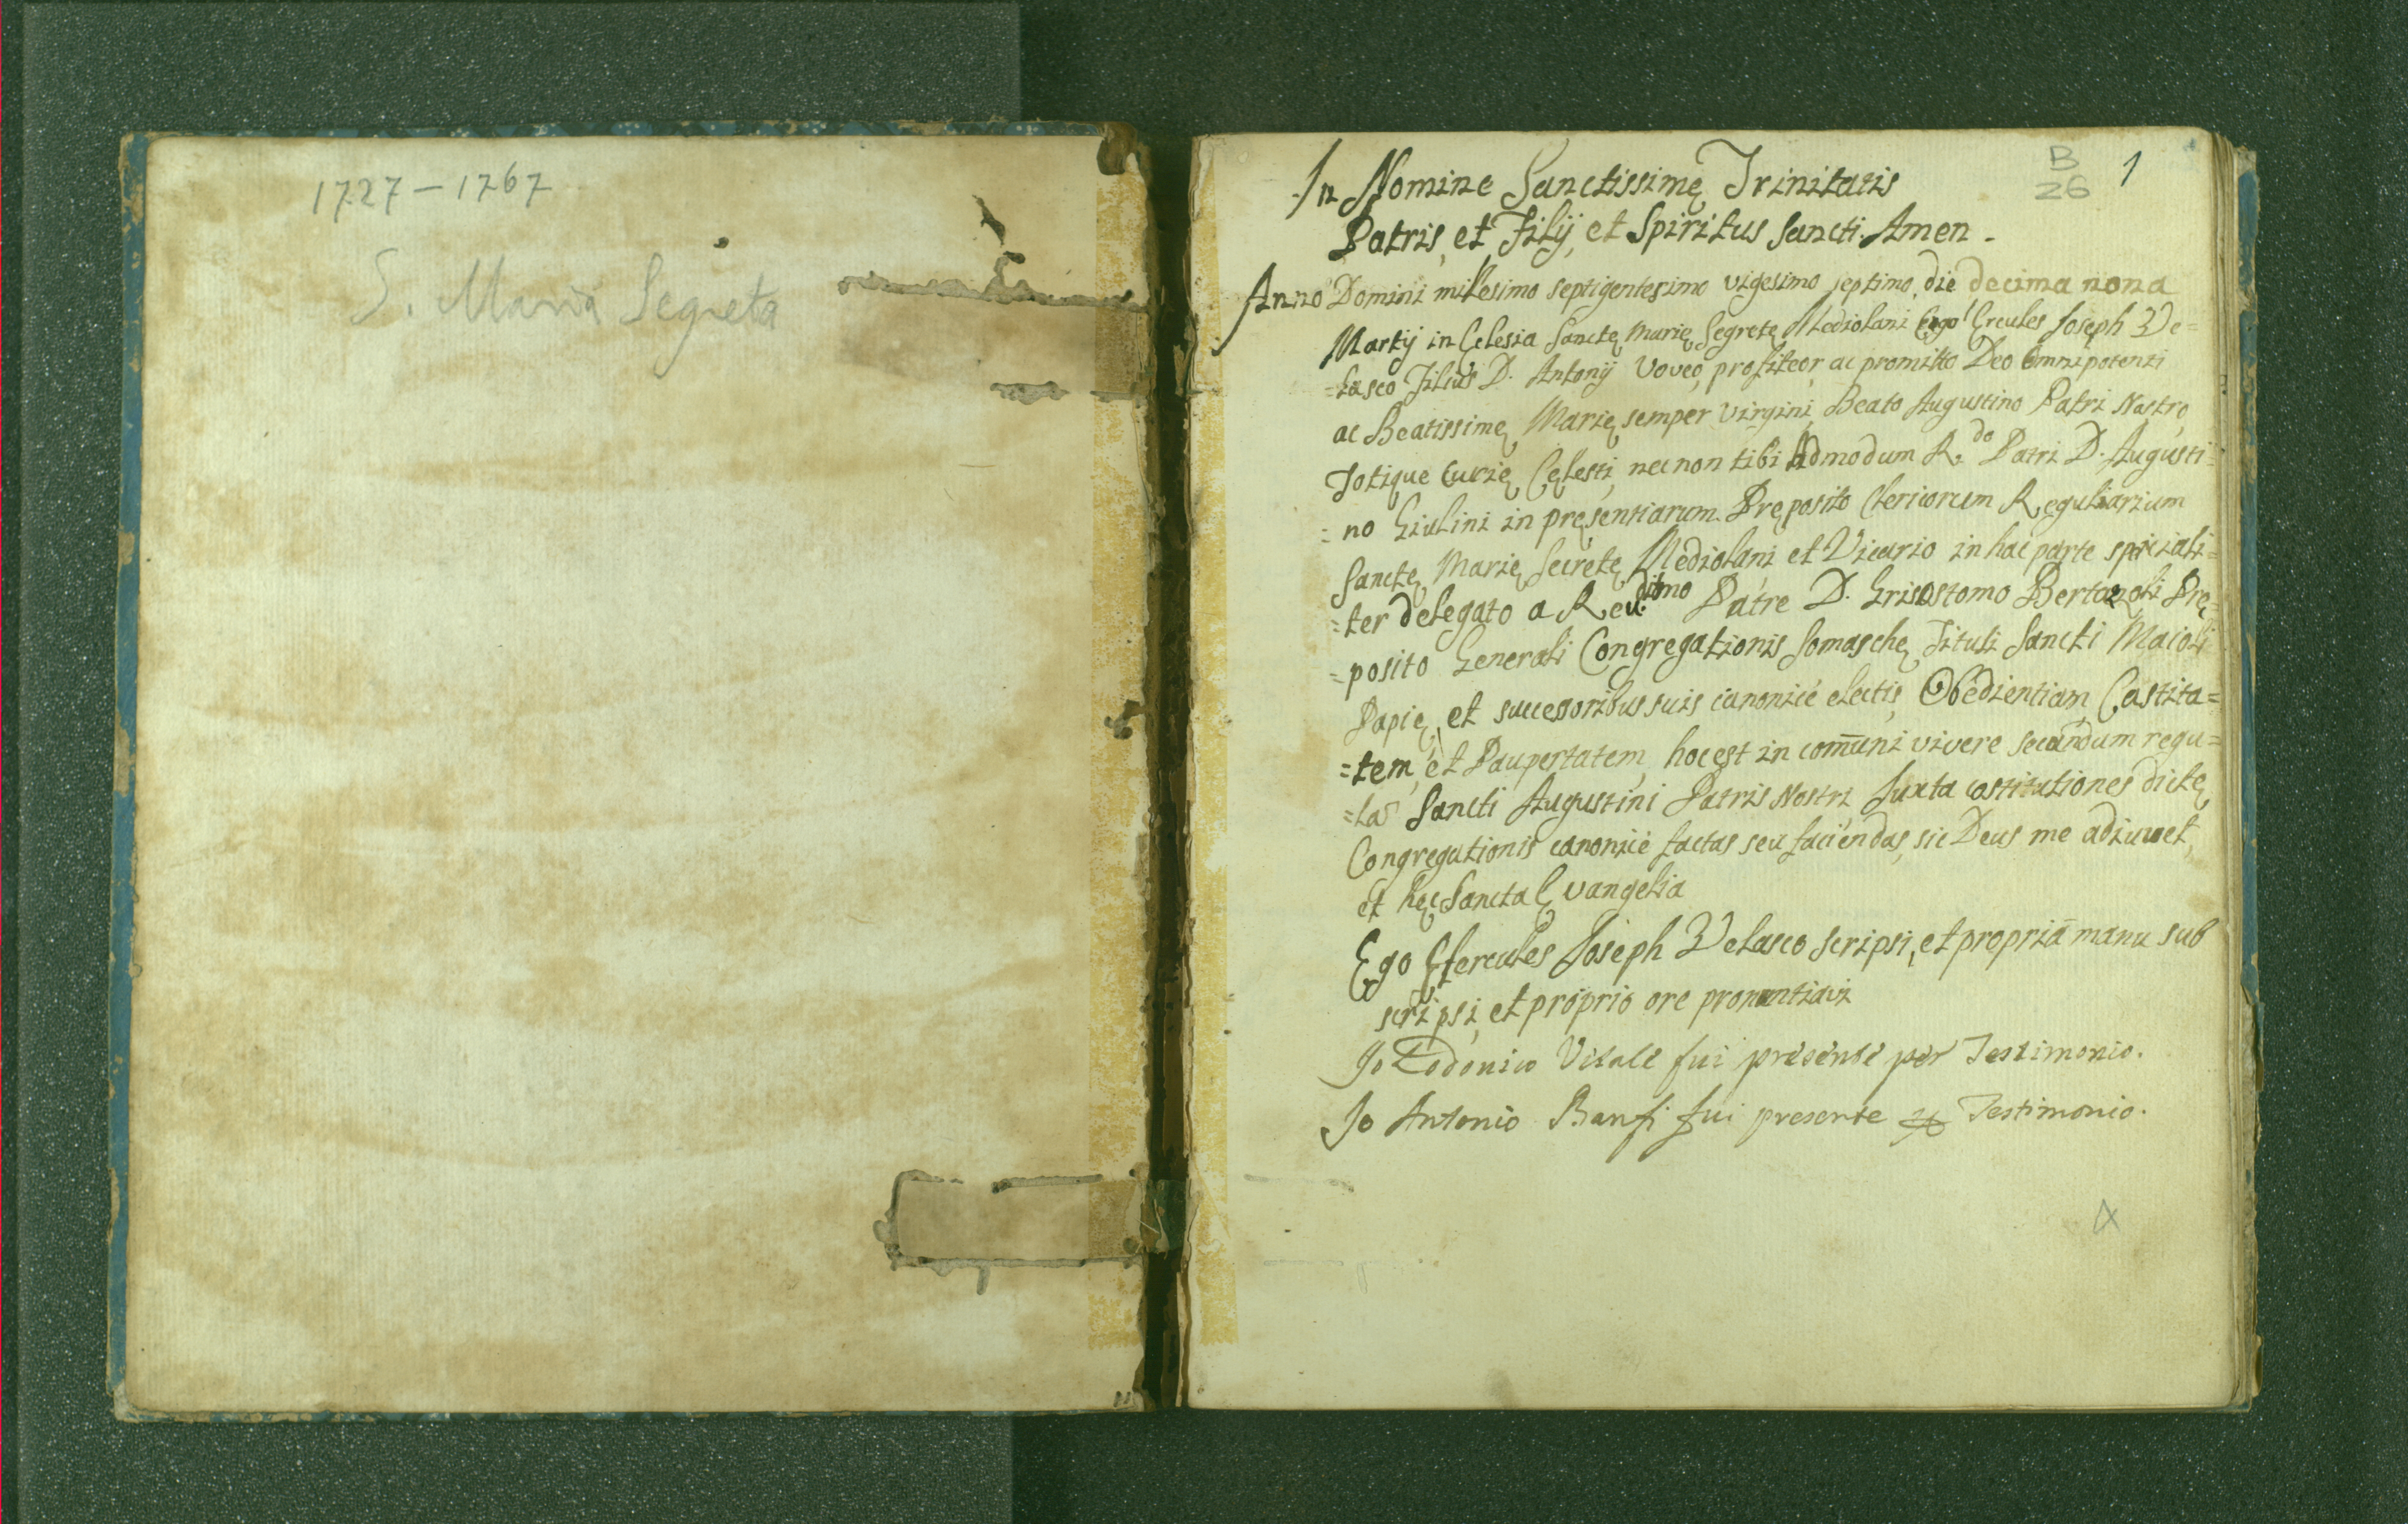 1727 – 1767
S. Maria Segreta
B
26
1
In Nomine Sanctissimę Trinitatis
Patris, et Filij, et Spiritus Sancti. Amen.
Anno Domini millesimo septigentesimo vigesimo septimo, die decima nona
Martij in Eclesia Sanctę Marię Segretę Mediolani Ego Ercules Joseph Ve=
=lasco Filius D. Antonij Voveo, profiteor, ac promitto Deo Omnipotenti
ac Beatissimę Marię semper Virgini, Beato Augustino Patri Nostro,
Totique Curię Cęlesti, nec non tibi Admodum R.do Patri D. Augusti=
=no Giulini in pręsentiarum Pręposito Clericorum Regularium
Sanctę Marię Secretę Mediolani et Vicario in hac parte speciali=
=ter delegato a Reu.ditmo Patre D. Grisostomo Bertazoli Prę=
=posito Generali Congregationis Somaschę Tituli Sancti Maioli
Papię, et successoribus suis canonicè electis, Obedientiam, Castita=
=tem, et Paupertatem, hoc est in com̄uni vivere secundum regu=
=las Sancti Augustini Patris Nostri, Juxta costitutiones dictę
Congregationis canonicè factas seu faciendas, sic Deus me adiuvet,
et hęc Sancta Evangelia
Ego Hercules Joseph Velasco scripsi, et propriā manu sub
scripsi, et proprio ore pronuntiavi
Io Lodovico Vitale fui presente per Testimonio.
Io Antonio Banfi fui presente ꝑ Testimonio.